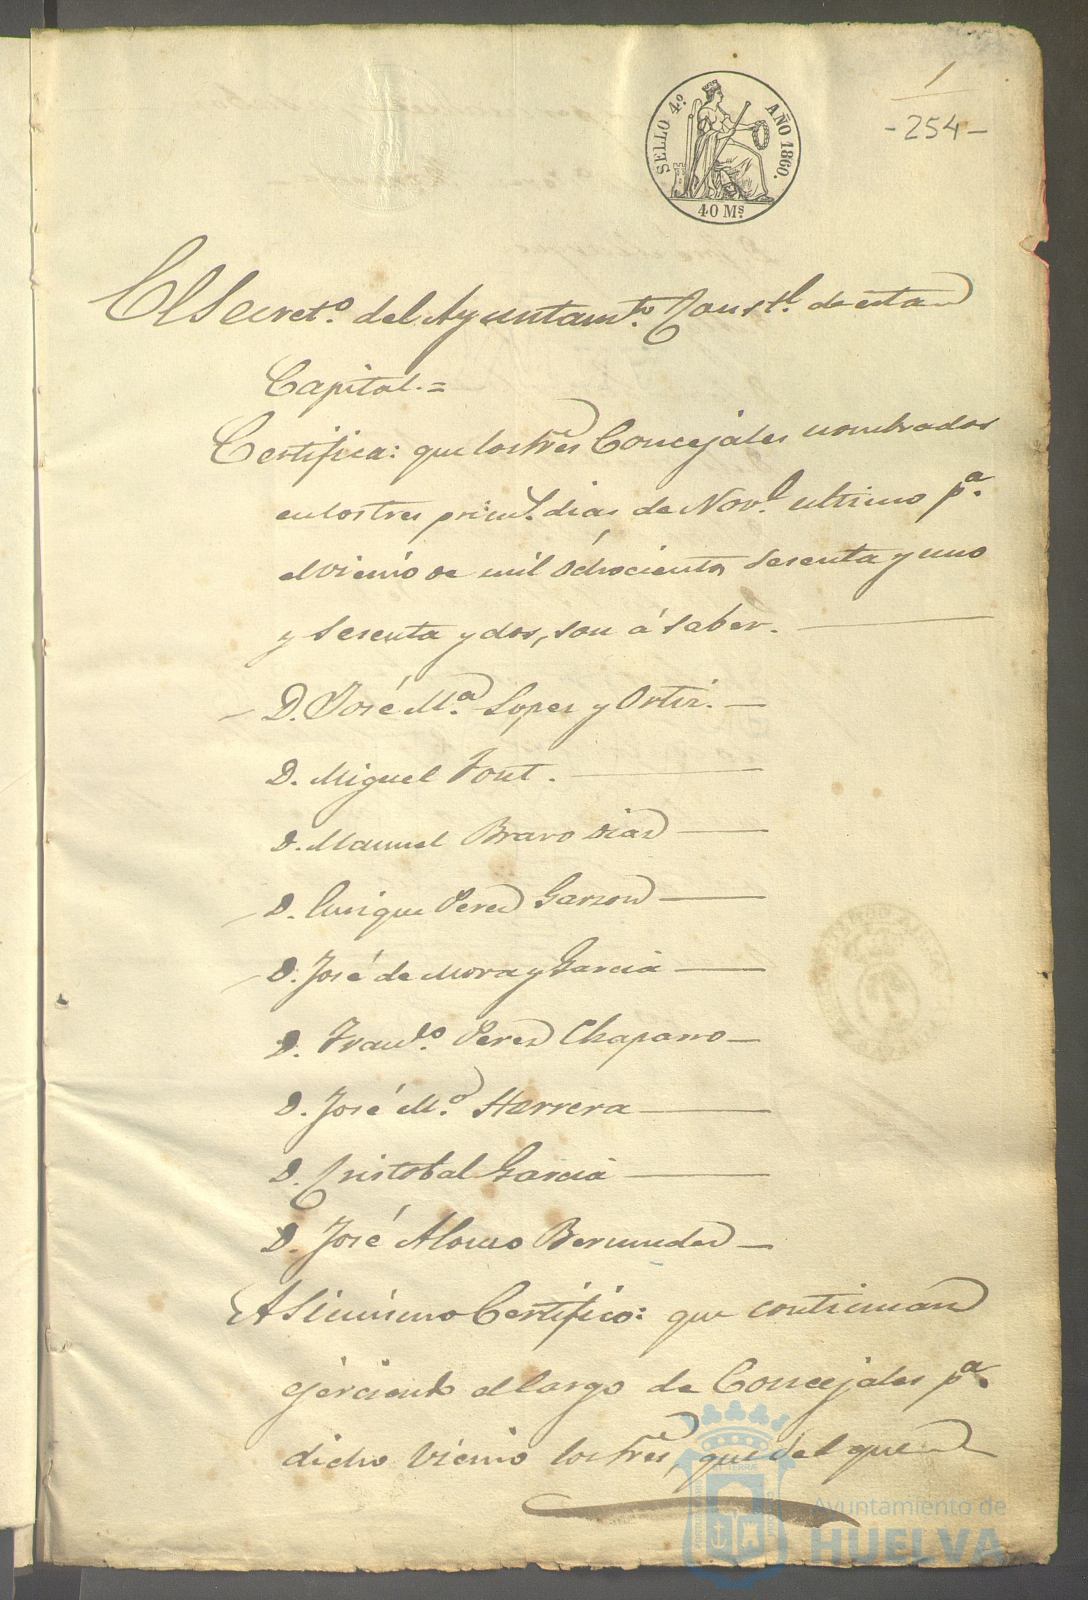 SELLO 4º AÑO 1860.
40 Ms.
1
-254-
El Secret.º del Ayuntam.to Const.l de esta
Capital.=
Certifica: que los Sres Concejales nombrados
en los tres prim.s dias de Nov.e ultimo p.a
el vienio de mil ochocientos sesenta y uno
y sesenta y dos, son á saber.
D. José M.a Lopez y Ortiz.
D. Miguel Font.
D. Manuel Bravo Diaz
D. Enrique Perez Garzon
D. José de Mora y Garcia
D. Fran.co Perez Chaparro
D. José M.a Herrera
D. Cristobal Garcia
D. José Alonso Bermudez
Asimismo Certifico: que continuan
ejerciendo el cargo de Concejales p.a
dicho vienio los Sres, que del que
Ayuntamiento de
HUELVA